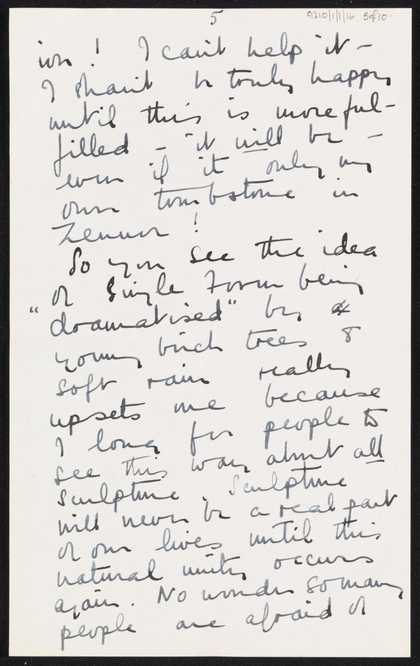 5
9210/1/1/16 5of10
ion! I can't help it –
I shan't be truly happy
until this is more ful-
filled – it will be –
even if it only my
own tombstone in
Zennor!
So you see the idea
of Single Form being
"dramatised" by
young birch trees &
soft rain really
upsets me because
I long for people to
see this way about all
sculpture. Sculpture
will never be a real part
of our lives until this
natural unity occurs
again. No wonder so many
people are afraid of